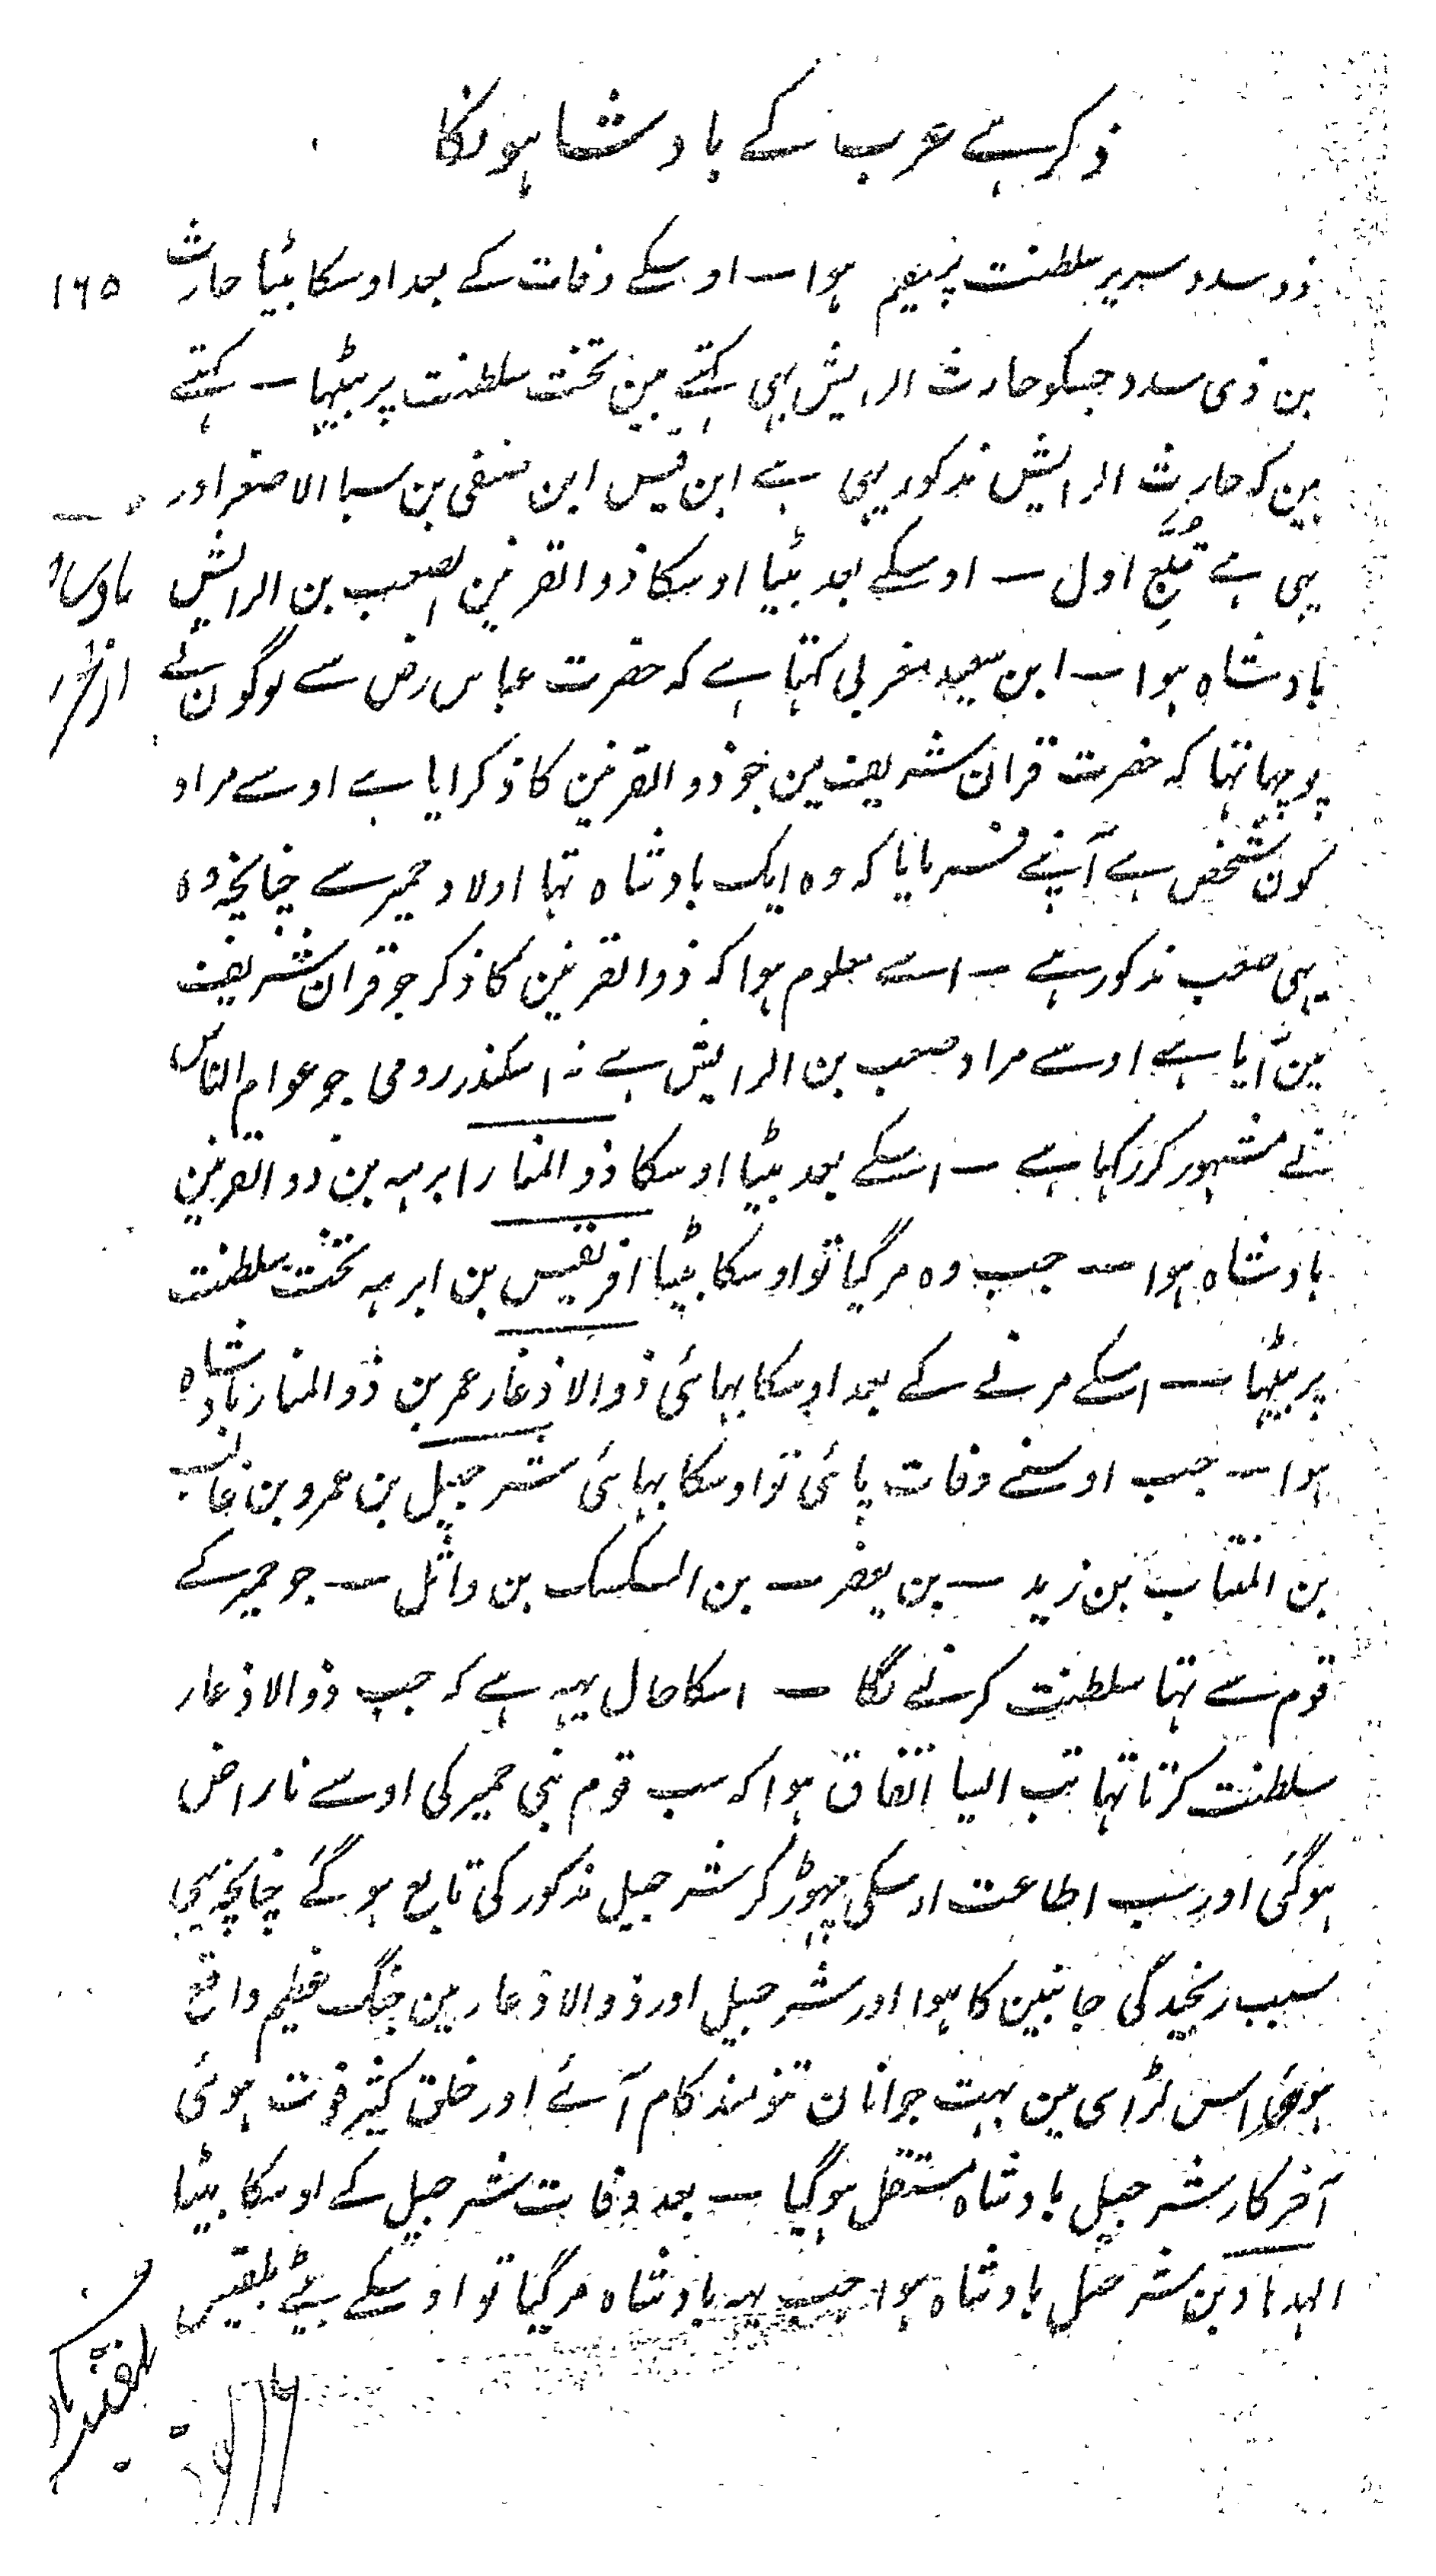 ذکر ہے عرب کے بادشاہونکا
ذو سدد سریر سلطنت پر مقیم ہوا — اوسکے وفات کے بعد اوسکا بیٹا حارث
۱۶۵
بن ذی سدد جسکو حارث الرایش بہی کہتے ہین تخت سلطنت پر بیٹہا — کہتے
ہین کہ حارث الرایش مذکور یہی ہے ابن قیس ابن صیفی بن سبا الاصغر اور
یہی ہے تُبَّع اول — اوسکے بعد بیٹا اوسکا ذو القرنین الصعب بن الرایش
بادشاہ ہوا — ابن سعید مغربی کہتا ہے کہ حضرت عباس رض سے لوگون نے
پوچہا تہا کہ حضرت قران شریف مین جو ذو القرنین کا ذکر ایا ہے اوسے مراد
کون شخص ہے آپنے فرمایا کہ وہ ایک بادشاہ تہا اولاد حمیر سے چنانچہ وہ
یہی صعب مذکور ہے — اسے معلوم ہوا کہ ذو القرنین کا ذکر جو قران شریف
مین آیا ہے اوسے مراد صعب بن الرایش ہے نہ اسکندر رومی جو عوام الناس
نے مشہور کر رکہا ہے — اسکے بعد بیٹا اوسکا ذو المنار ابرہہ بن ذو القرنین
بادشاہ ہوا — جب وہ مر گیا تو اوسکا بیٹا افریقیس بن ابرہہ تخت سلطنت
پر بیٹہا — اسکے مرنے کے بعد اوسکا بہائی ذو الاذعار عمر بن ذو المنار بادشاہ
ہوا — جب اوسنے وفات پائی تو اوسکا بہائی شرجیل بن عمرو بن غالب
بن المنتاب بن زید — بن یعفر — بن السکسک بن واثل — جو حمیر کے
قوم سے تہا سلطنت کرنے لگا — اسکا حال یہہ ہے کہ جب ذو الاذعار
سلطنت کرتا تہا تب ایسا اتفاق ہوا کہ سب قوم بنی حمیر کی اوسے ناراض
ہوگئی اور سب اطاعت اوسکی چہوڑ کر شرجیل مذکور کی تابع ہو گئے چنانچہ یہی
سبب رنجیدگی جانبین کا ہوا اور شرجیل اور ذو الاذعار مین جنگ عظیم واقع
ہوئی اس لڑای مین بہت جوانان تنومند کام آئے اور خلق کثیر فوت ہوئی
آخر کار شرجیل بادشاہ مستقل ہو گیا — بعد وفات شرجیل کے اوسکا بیٹا
الہدہاد بن شرجیل بادشاہ ہوا جب یہہ بادشاہ مر گیا تو اوسکے بیٹے بلقیس